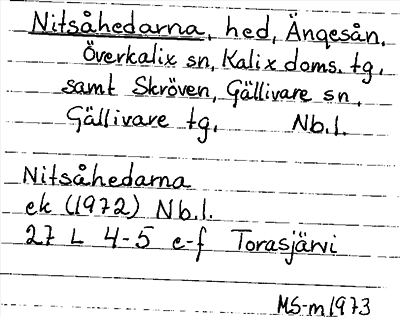 Nitsåhedarna, hed, Ängesån,
Överkalix sn, Kalix doms. tg,
samt Skröven, Gällivare sn,
Gällivare tg, Nb.l.
Nitsåhedarna
ek (1972) Nb.l.
27 L 4-5 e-f Torasjärvi
MS-m 1973